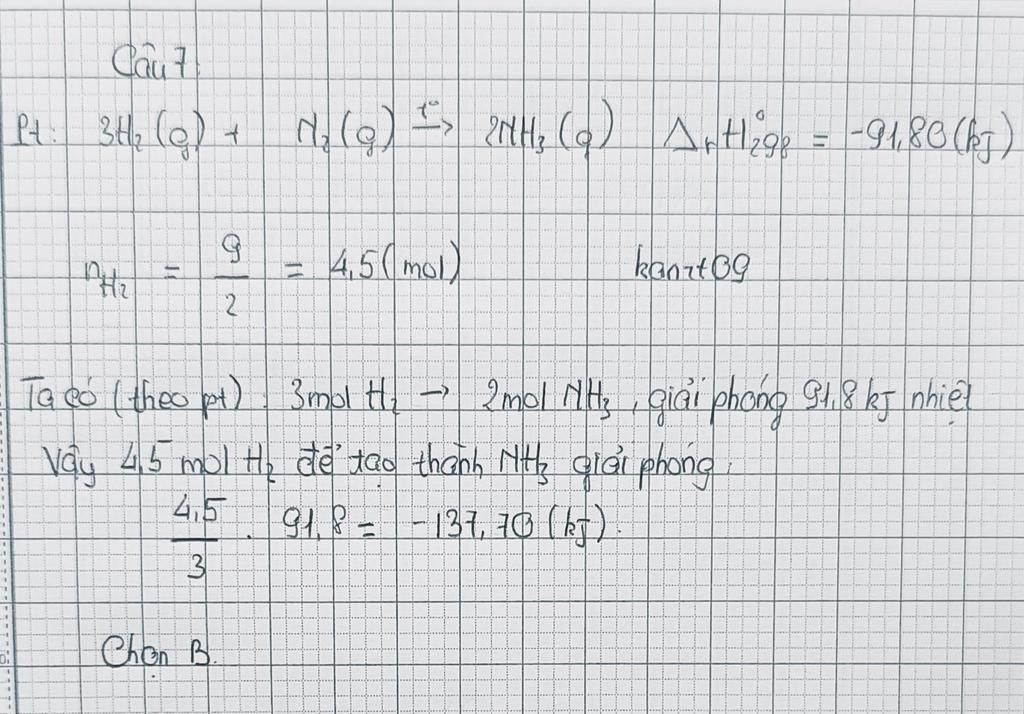 Câu 7:
Pt: 3H₂(g) + N₂(g) —t°→ 2NH₃(g) ΔᵣH°₂₉₈ = -91,80(kJ)
nH₂ = 9/2 = 4,5(mol) kanzt09
Ta có (theo pt): 3mol H₂ → 2mol NH₃, giải phóng 91,8 kJ nhiệt
Vậy 4,5 mol H₂ để tạo thành NH₃ giải phóng:
4,5/3 . 91,8 = -137,70 (kJ).
Chọn B.